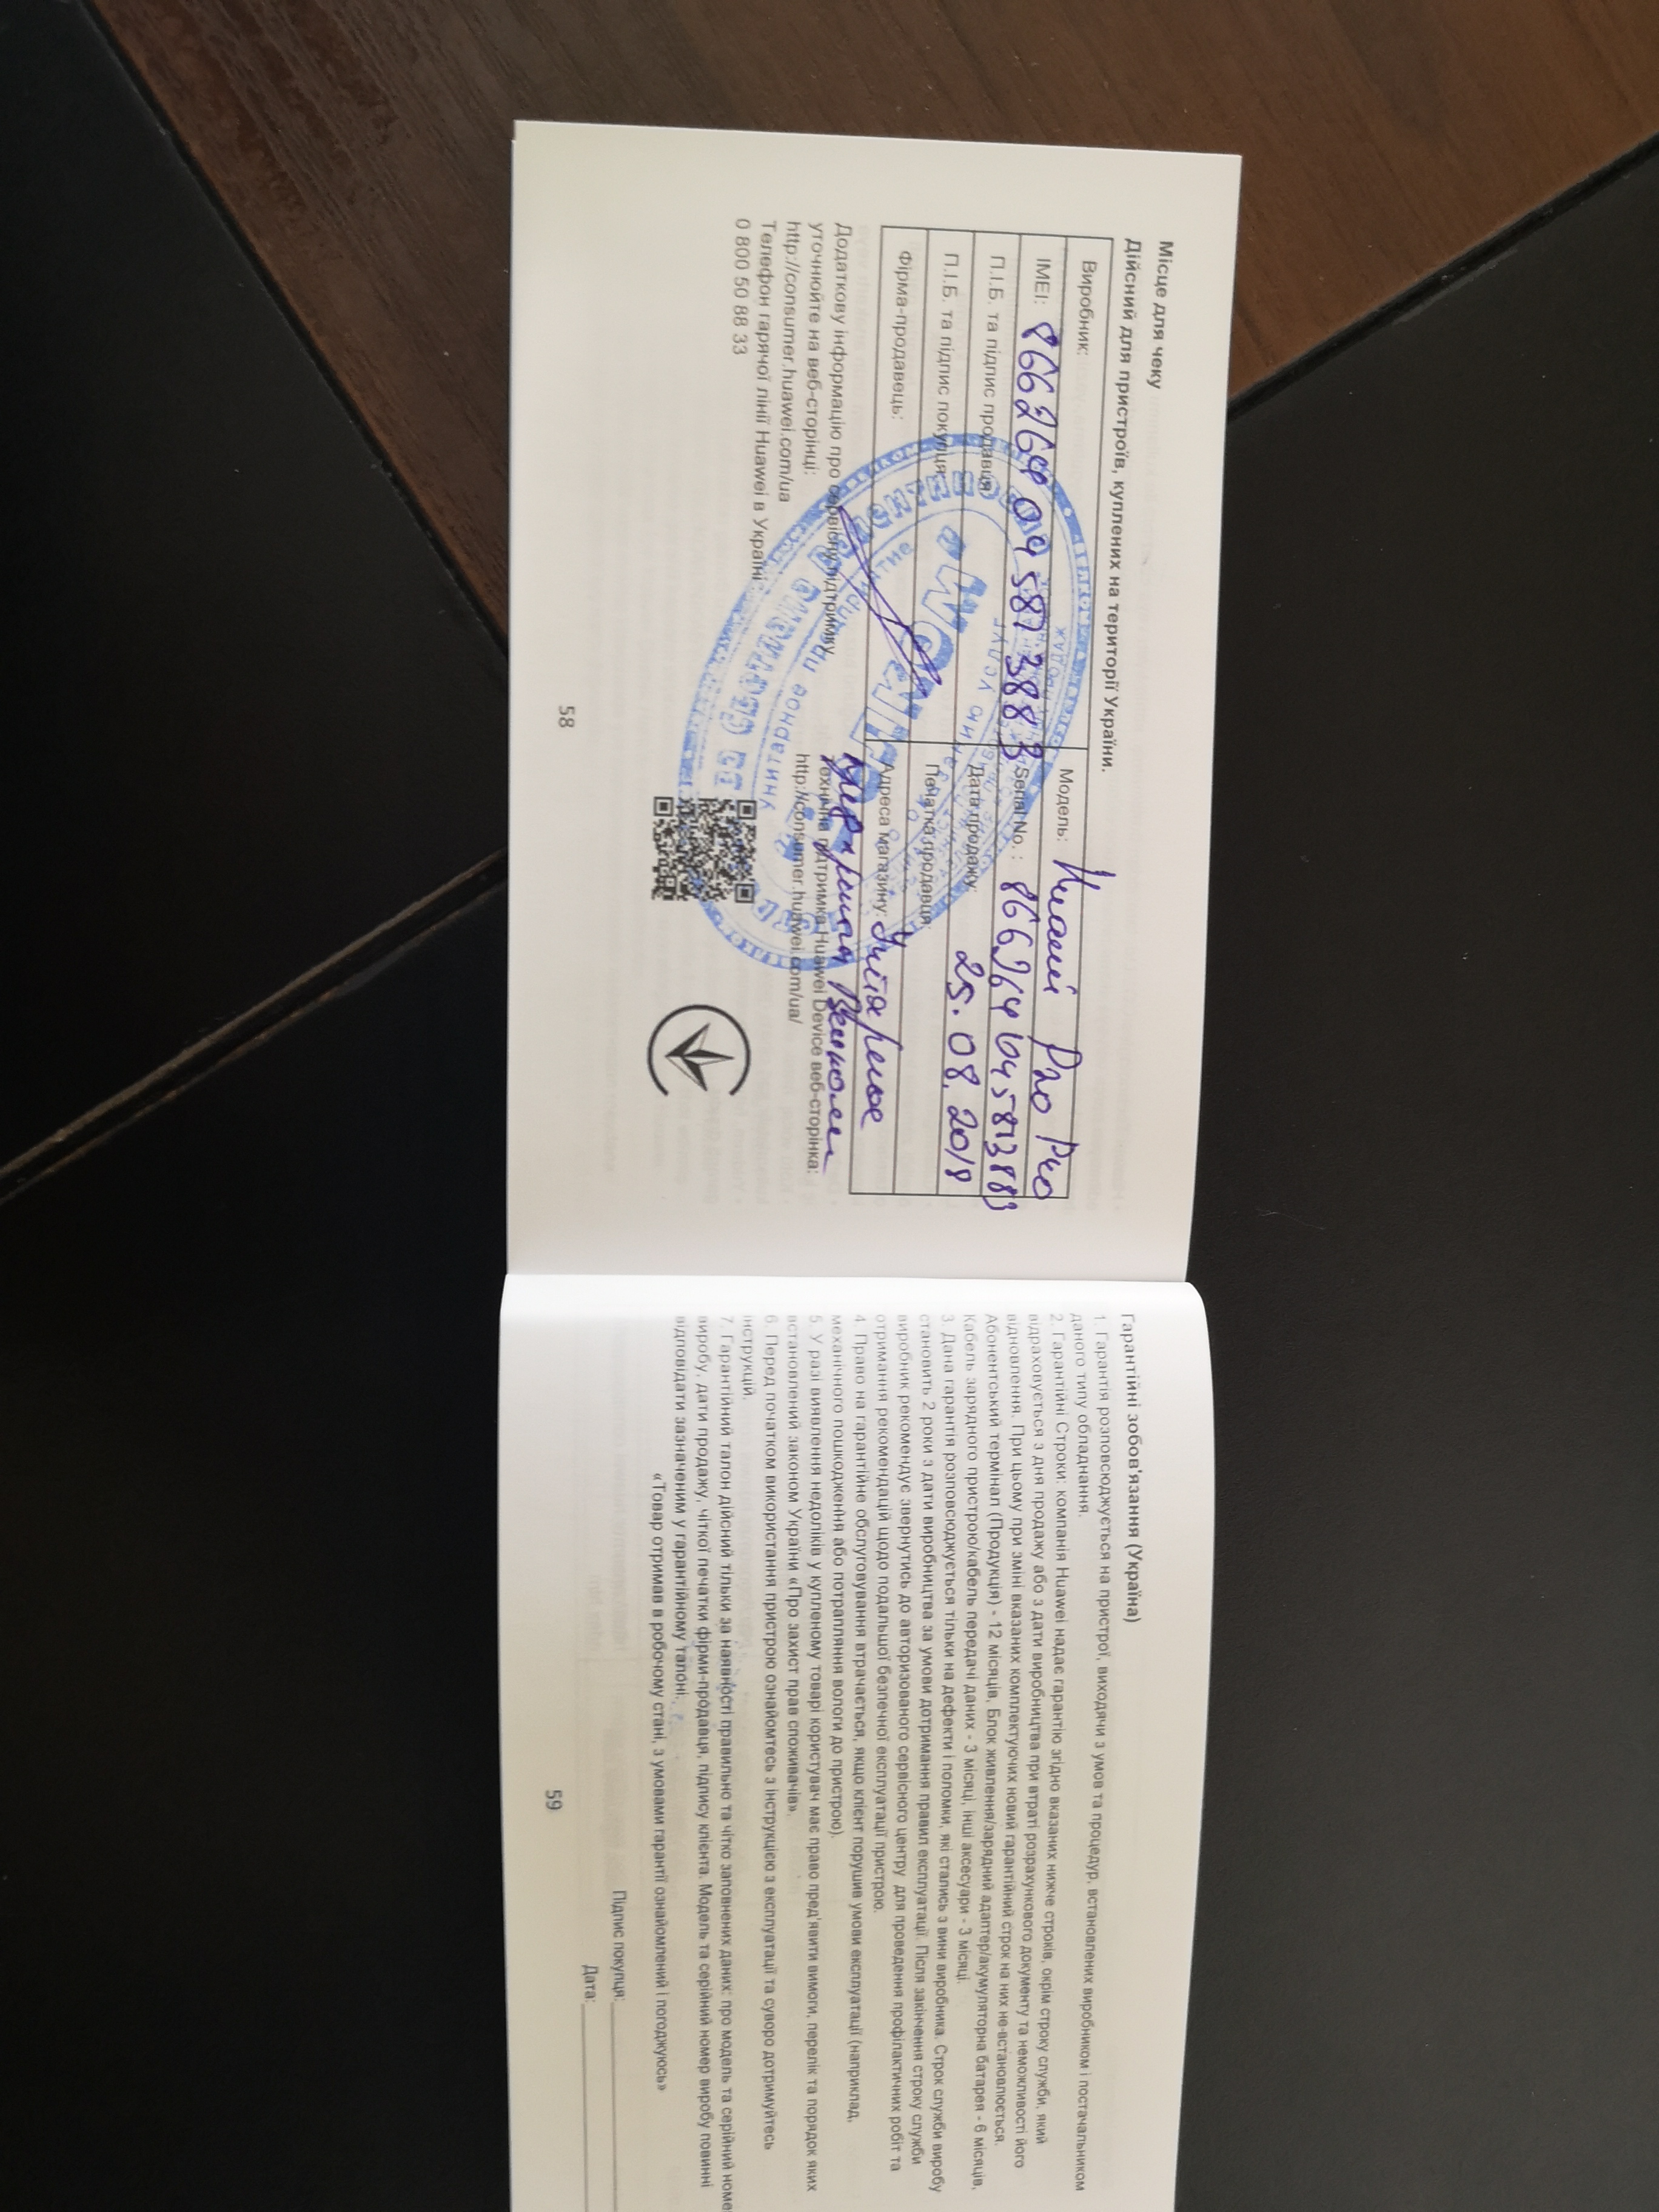 Місце для чеку
Дійсний для пристроїв, куплених на території України.
Виробник:
Модель: Pro
IMEI:
Serial No. :
П.І.Б. та підпис продавця
Дата продажу: 25.08.2018
П.І.Б. та підпис покупця
Печатка продавця:
Фірма-продавець:
Адреса магазину:
Додаткову інформацію про сервісну підтримку
уточнюйте на веб-сторінці:
http://consumer.huawei.com/ua
Телефон гарячої лінії Huawei в Україні:
0 800 50 88 33
Технічна підтримка Huawei Device веб-сторінка:
http://consumer.huawei.com/ua/
58
Гарантійні зобов'язання (Україна)
1. Гарантія розповсюджується на пристрої, виходячи з умов та процедур, встановлених виробником і постачальником
даного типу обладнання.
2. Гарантійні Строки: компанія Huawei надає гарантію згідно вказаних нижче строків, окрім строку служби, який
відраховується з дня продажу або з дати виробництва при втраті розрахункового документу та неможливості його
відновлення. При цьому при зміні вказаних комплектуючих новий гарантійний строк на них не-встановлюється.
Абонентський термінал (Продукція) - 12 місяців, Блок живлення/зарядний адаптер/акумуляторна батарея - 6 місяців,
Кабель зарядного пристрою/кабель передачі даних - 3 місяці, інші аксесуари - 3 місяці.
3. Дана гарантія розповсюджується тільки на дефекти і поломки, які стались з вини виробника. Строк служби виробу
становить 2 роки з дати виробництва за умови дотримання правил експлуатації. Після закінчення строку служби
виробник рекомендує звернутись до авторизованого сервісного центру для проведення профілактичних робіт та
отримання рекомендацій щодо подальшої безпечної експлуатації пристрою.
4. Право на гарантійне обслуговування втрачається, якщо клієнт порушив умови експлуатації (наприклад,
механічного пошкодження або потрапляння вологи до пристрою).
5. У разі виявлення недоліків у купленому товарі користувач має право пред'явити вимоги, перелік та порядок яких
встановлений законом України «Про захист прав споживачів».
6. Перед початком використання пристрою ознайомтесь з інструкцією з експлуатації та суворо дотримуйтесь
інструкцій.
7. Гарантійний талон дійсний тільки за наявності правильно та чітко заповнених даних: про модель та серійний номе
виробу, дати продажу, чіткої печатки фірми-продавця, підпису клієнта. Модель та серійний номер виробу повинні
відповідати зазначеним у гарантійному талоні.
«Товар отримав в робочому стані, з умовами гарантії ознайомлений і погоджуюсь»
Підпис покупця:
Дата:
59